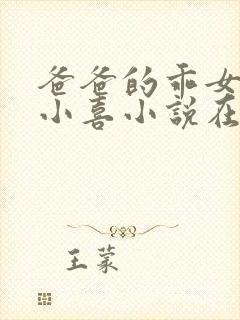 爸爸的乖女
小喜小說在
王蒙